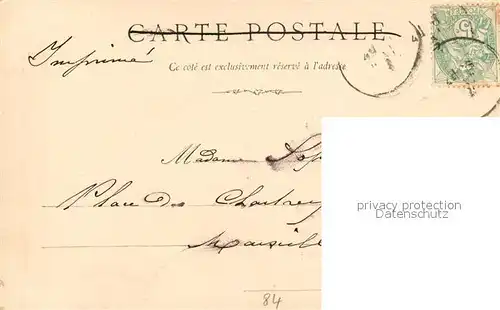 CARTE POSTALE
Imprimé
Ce côté est exclusivement réservé à l'adresse
Madame
Place des Chartreux
Marseille
privacy protection
Datenschutz
84